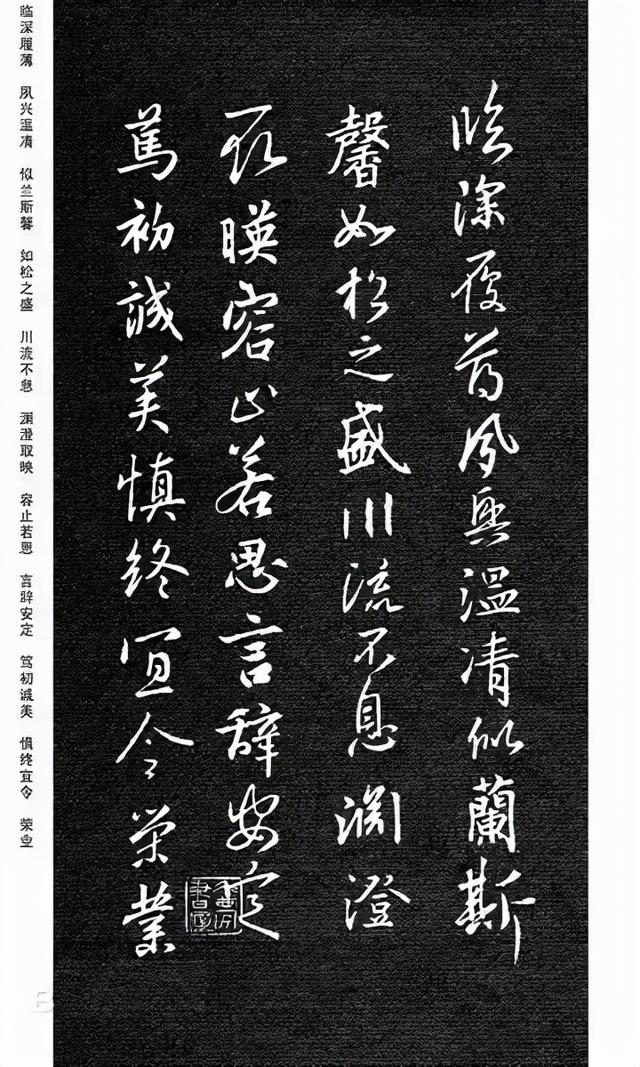 临深履薄 夙兴温凊 似兰斯馨 如松之盛 川流不息 渊澄取映 容止若思 言辞安定 笃初诚美 慎终宜令 荣业
臨深履薄夙興溫凊似蘭斯
馨如松之盛川流不息淵澄
取暎容止若思言辭安定
篤初誠美慎終宜令榮業